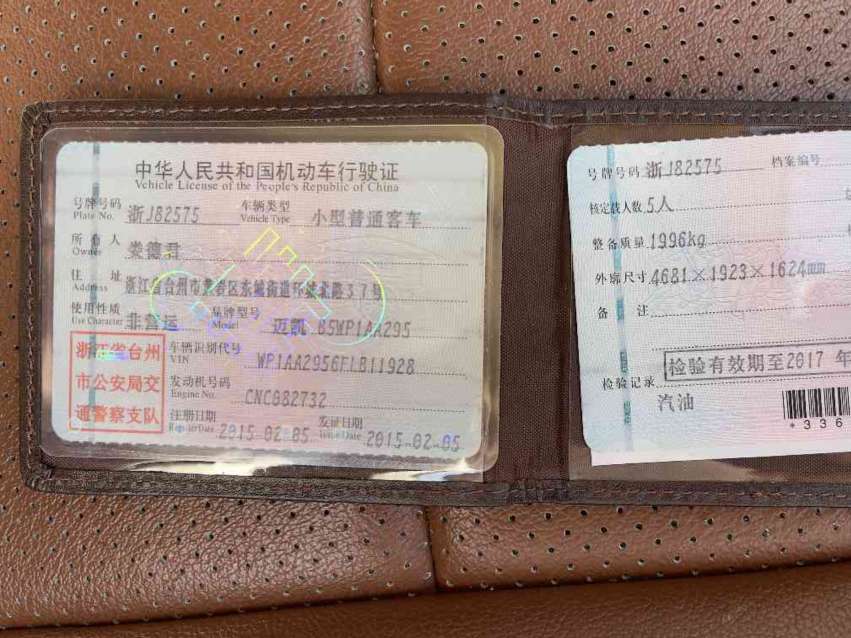 中华人民共和国机动车行驶证
Vehicle License of the People's Republic of China
号牌号码 浙J82575 车辆类型 小型普通客车
Plate No. Vehicle Type
所有人 娄德君
Owner
住址 浙江省台州市黄岩区东城街道环城北路37号
Address
使用性质 非营运 品牌型号 迈凯 65WP1AA295
Use Character Model
浙江省台州
市公安局交
通警察支队
车辆识别代号 WP1AA2956FLB11928
VIN
发动机号码 CNC082732
Engine No.
注册日期 2015-02-05 发证日期 2015-02-05
Register Date Issue Date
号牌号码 浙J82575 档案编号
核定载人数 5人
整备质量 1996kg
外廓尺寸 4681×1923×1624mm
备注
检验有效期至2017年
检验记录
汽油
*336